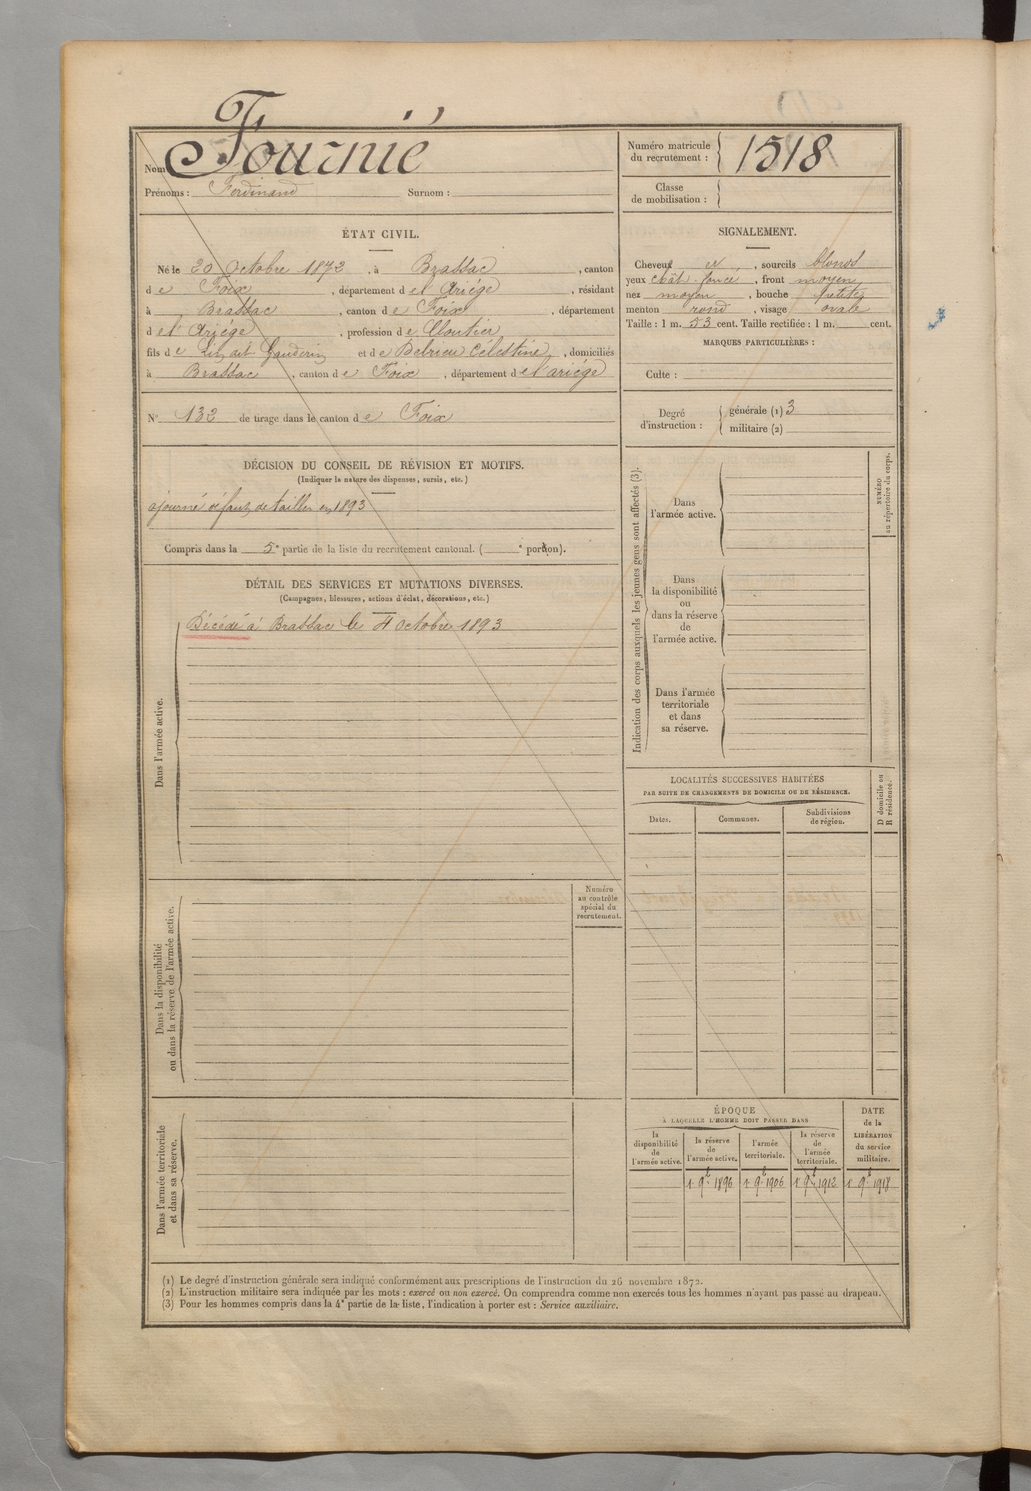 Nom Fournié
Prénoms : Ferdinand Surnom :
Numéro matricule du recrutement : 1518
Classe de mobilisation :
ÉTAT CIVIL.
Né le 20 Octobre 1872, à Brassac, canton
de Foix, département de l'Ariége, résidant
à Brassac, canton de Foix, département
de l'Ariége, profession de Cloutier
fils de dit Gauderin et de Delrieu Célestine, domiciliés
à Brassac, canton de Foix, département de l'ariége
N° 132 de tirage dans le canton de Foix
SIGNALEMENT.
Cheveux et, sourcils blonds
yeux chât. foncé, front moyen
nez moyen, bouche petite
menton rond, visage ovale
Taille : 1 m. 53 cent. Taille rectifiée : 1 m. cent.
MARQUES PARTICULIÈRES :
Culte :
Degré d'instruction : générale (1) 3
militaire (2)
DÉCISION DU CONSEIL DE RÉVISION ET MOTIFS.
(Indiquer la nature des dispenses, sursis, etc.)
ajourné défaut de taille en 1893
Compris dans la 5e partie de la liste du recrutement cantonal. ( e portion).
DÉTAIL DES SERVICES ET MUTATIONS DIVERSES.
(Campagnes, blessures, actions d'éclat, décorations, etc.)
Décédé à Brassac le 4 Octobre 1893
Dans l'armée active.
Dans la disponibilité
ou dans la réserve de l'armée active.
Numéro
au contrôle
spécial du
recrutement.
Dans l'armée territoriale
et dans sa réserve.
Indication des corps auxquels les jeunes gens sont affectés (3).
Dans
l'armée active.
Dans
la disponibilité
ou
dans la réserve
de
l'armée active.
Dans l'armée
territoriale
et dans
sa réserve.
NUMÉRO
au répertoire du corps.
LOCALITÉS SUCCESSIVES HABITÉES
PAR SUITE DE CHANGEMENTS DE DOMICILE OU DE RÉSIDENCE.
Dates.
Communes.
Subdivisions
de région.
D domicile ou
R résidence.
ÉPOQUE
À LAQUELLE L'HOMME DOIT PASSER DANS
la
disponibilité
de
l'armée active.
la réserve
de
l'armée active.
l'armée
territoriale.
la réserve
de
l'armée
territoriale.
DATE
de la
LIBÉRATION
du service
militaire.
1 9b 1896 1 9b 1906 1 9b 1912 1 9b 1918
(1) Le degré d'instruction générale sera indiqué conformément aux prescriptions de l'instruction du 26 novembre 1872.
(2) L'instruction militaire sera indiquée par les mots : exercé ou non exercé. On comprendra comme non exercés tous les hommes n'ayant pas passé au drapeau.
(3) Pour les hommes compris dans la 4e partie de la liste, l'indication à porter est : Service auxiliaire.